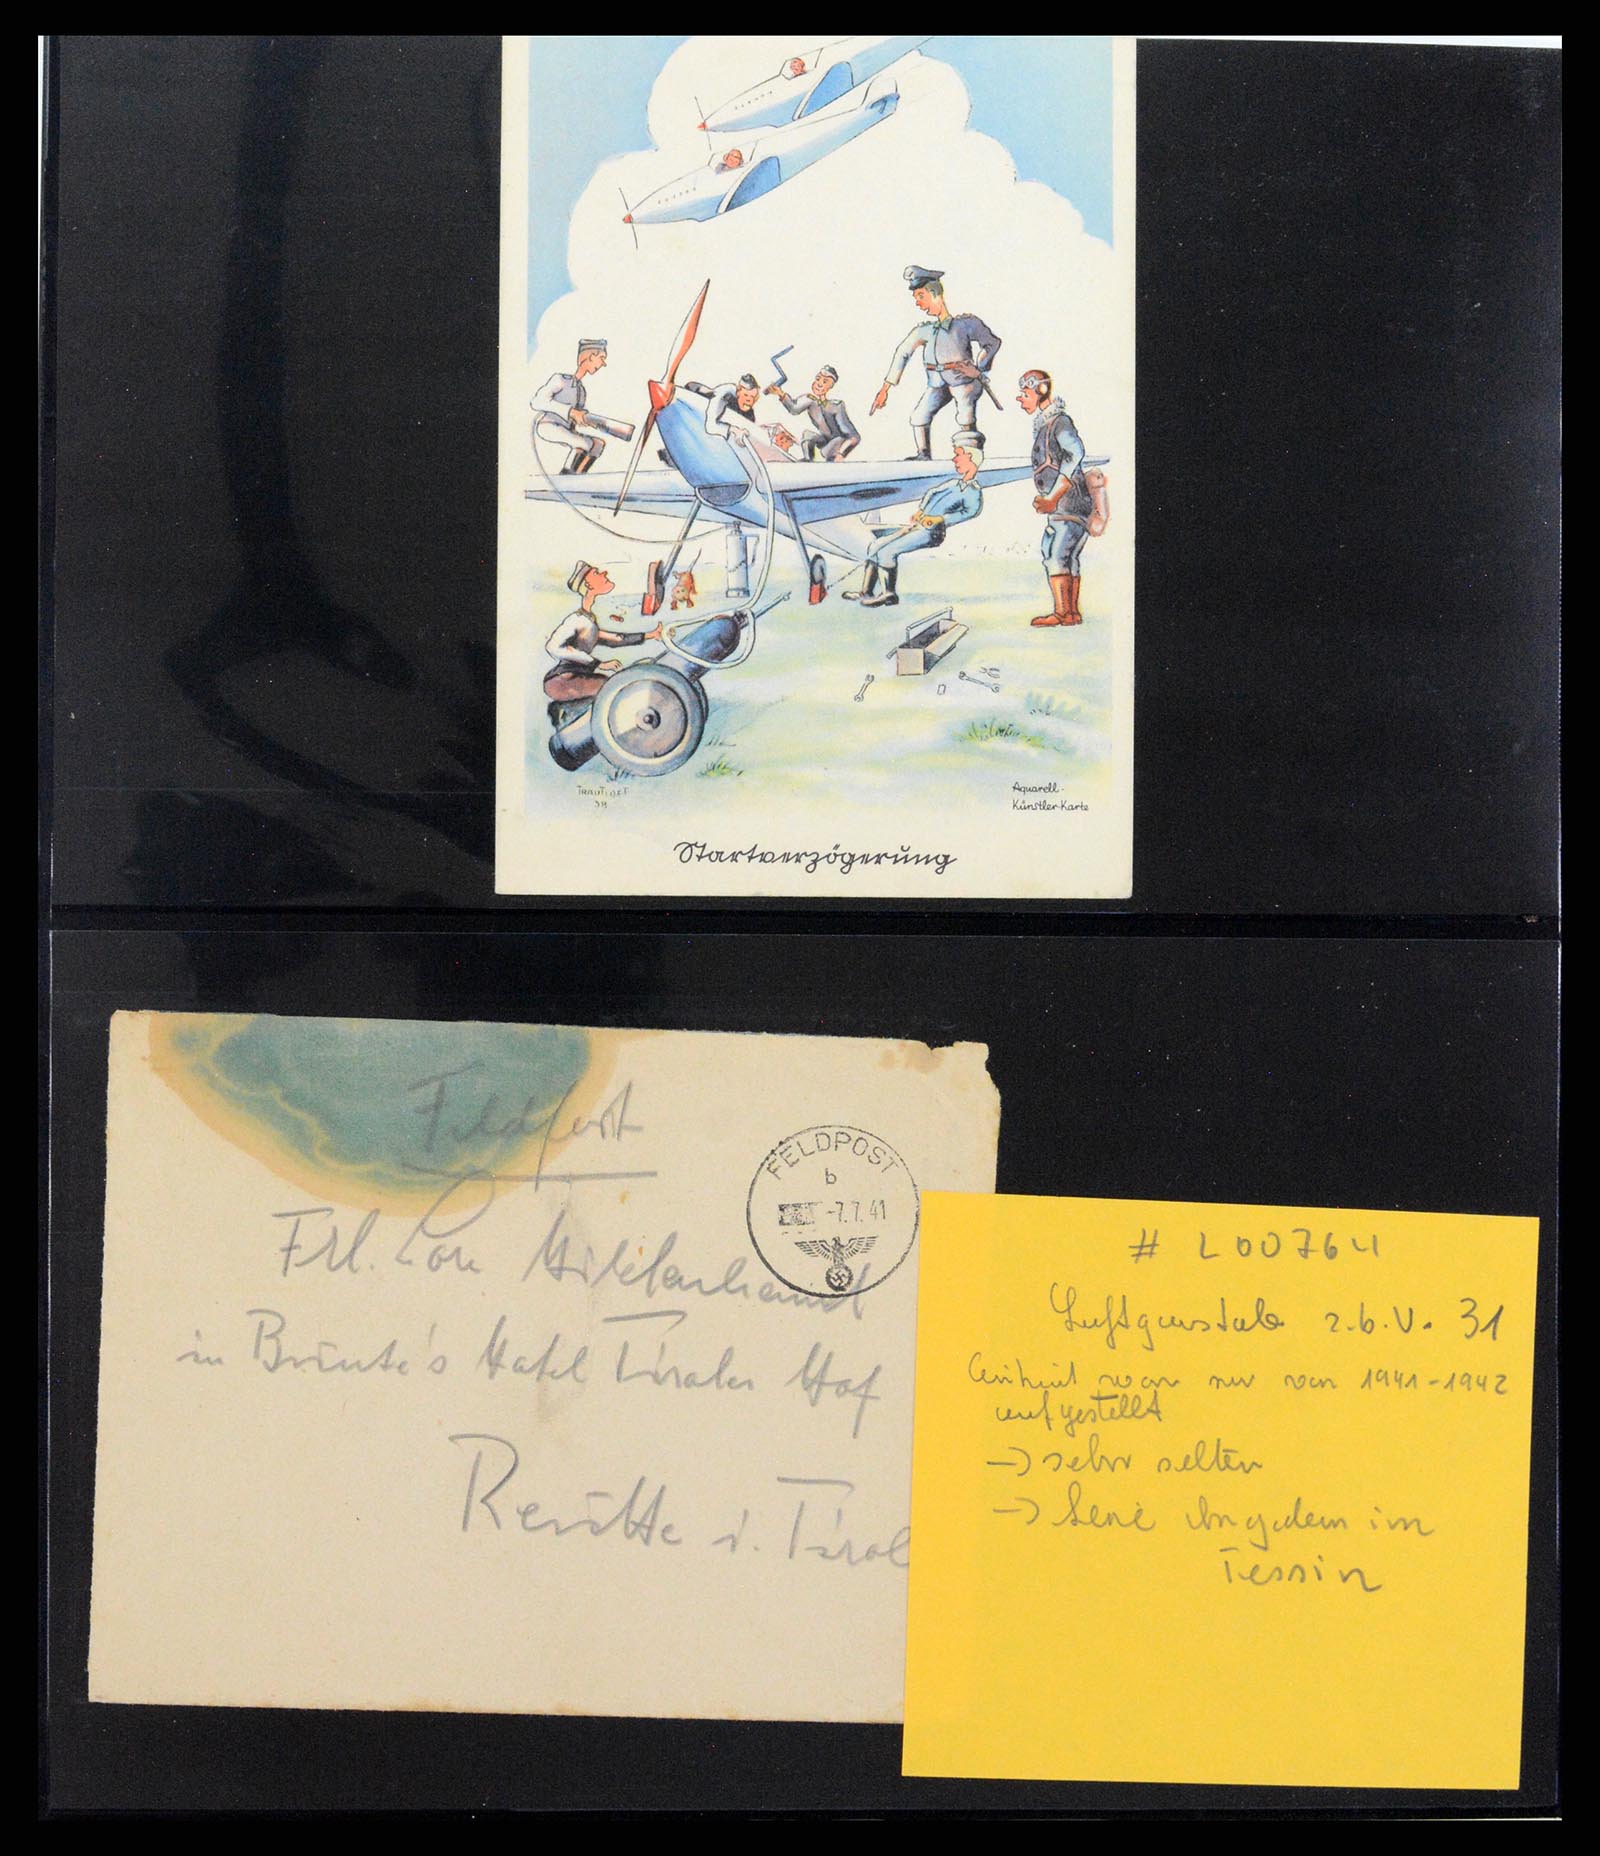 TRAUTLOFF
38
Aquarell-
Künstler-Karte
Startverzögerung
Feldpost
FELDPOST
b
-7.7.41
Frl.
in Hotel Tiroler Hof
Reutte i. Tirol
# L00764
Luftgaustab z.b.V. 31
Einheit war nur von 1941-1942
aufgestellt
→ sehr selten
→ im
Tessin